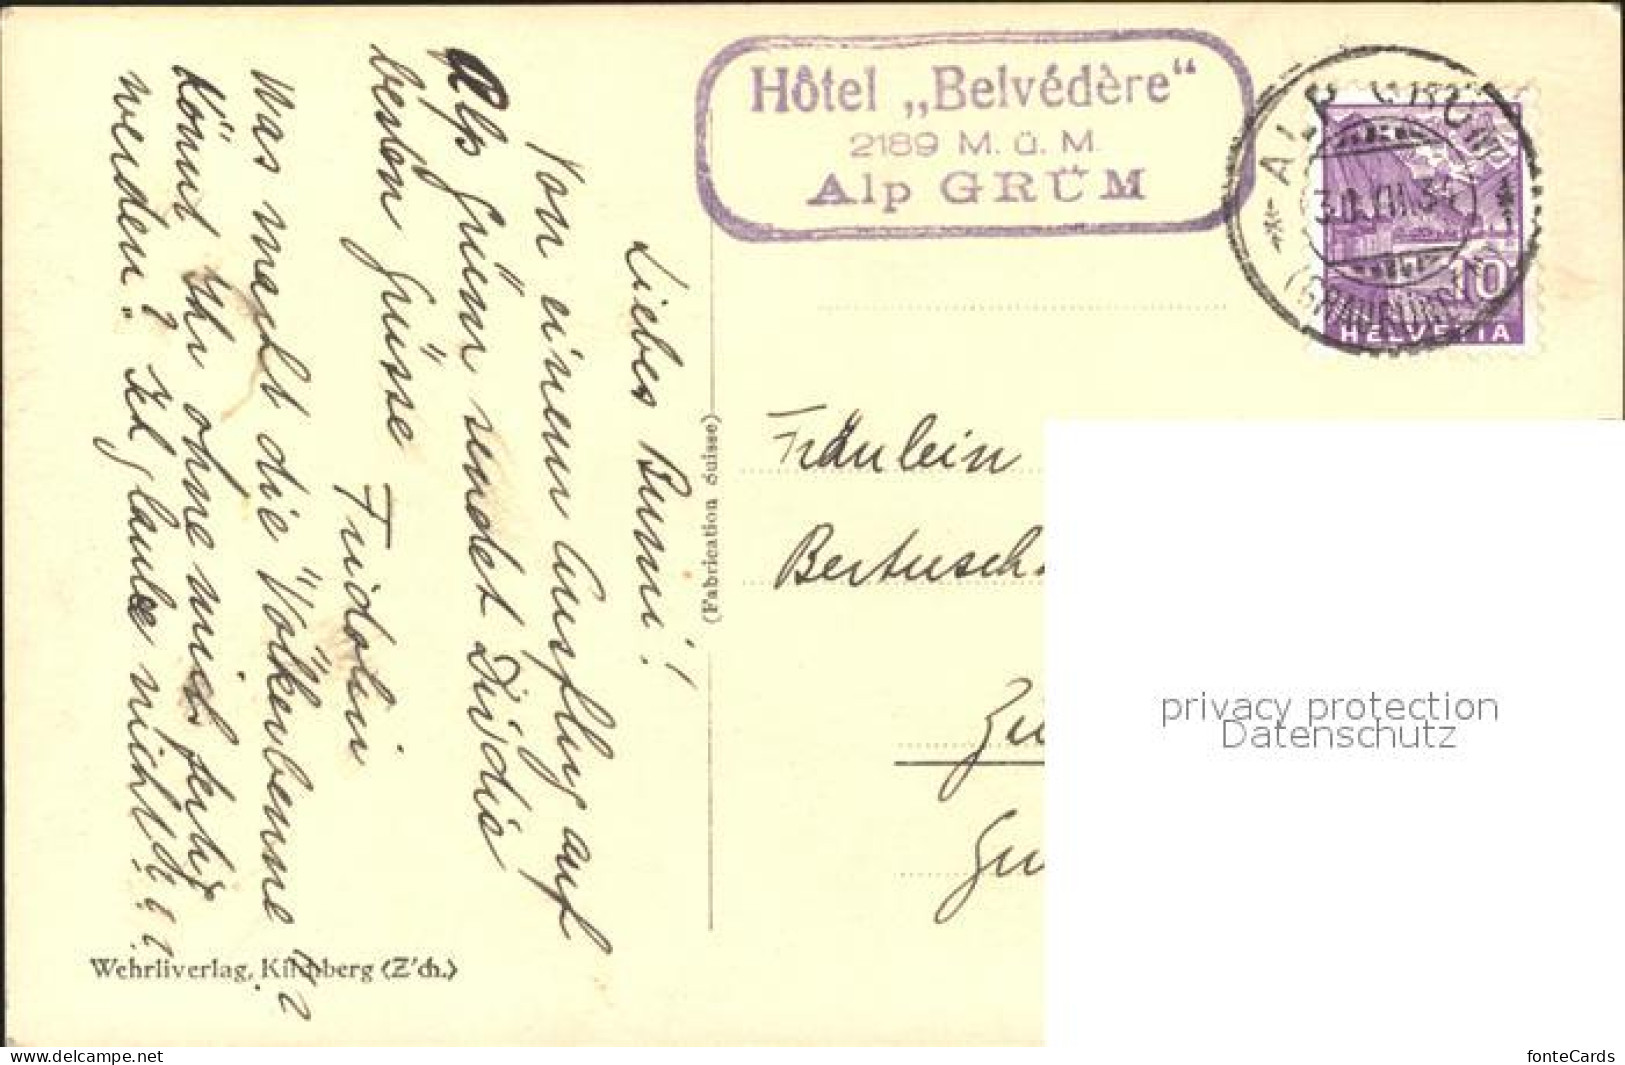 Hôtel „Belvédère“
2189 M. ü. M.
Alp GRÜM
ALP GRÜM
(GRAUBÜNDEN)
10
HELVETIA
Liebes Bumi!
Von einem Ausflug auf
Alp Grüm sendet Dir die
besten Grüsse
Fridolin
Was macht die "Völkerbemme"?
Könnt Ihr ohne mich fertig
werden? Ich glaube nicht!!!!
(Fabrication Suisse)
Fräulein
Wehrliverlag, Kilchberg (Z'ch.)
privacy protection
Datenschutz
https://www.delcampe.net
fonteCards